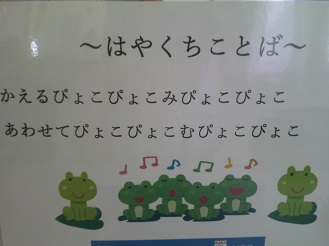 ～はやくちことば～
かえるぴょこぴょこみぴょこぴょこ
あわせてぴょこぴょこむぴょこぴょこ